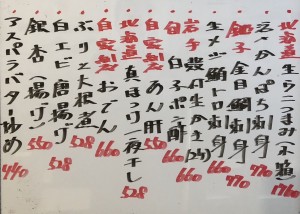 北海道 生ウニつまみ(木箱) 1760
えべかんぱち刺身
銚子 金目鯛刺身 770
生メジ鮪トロ刺身 770
岩手 殻付生かき(2ケ) 660
白子ポン酢 660
自家製 あん肝 550
北海道 真ほっけ一夜干し 528
自家製 おでん 660
ぶりと大根煮 528
白エビ唐揚げ 528
銀杏(揚げ) 550
アスパラバター炒め 440